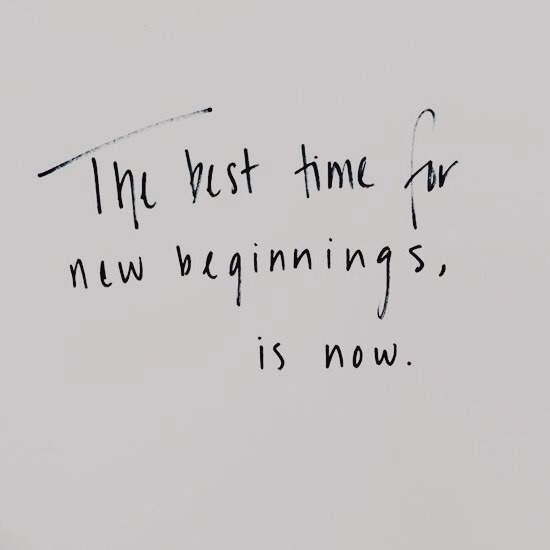 The best time for
new beginnings,
is now.